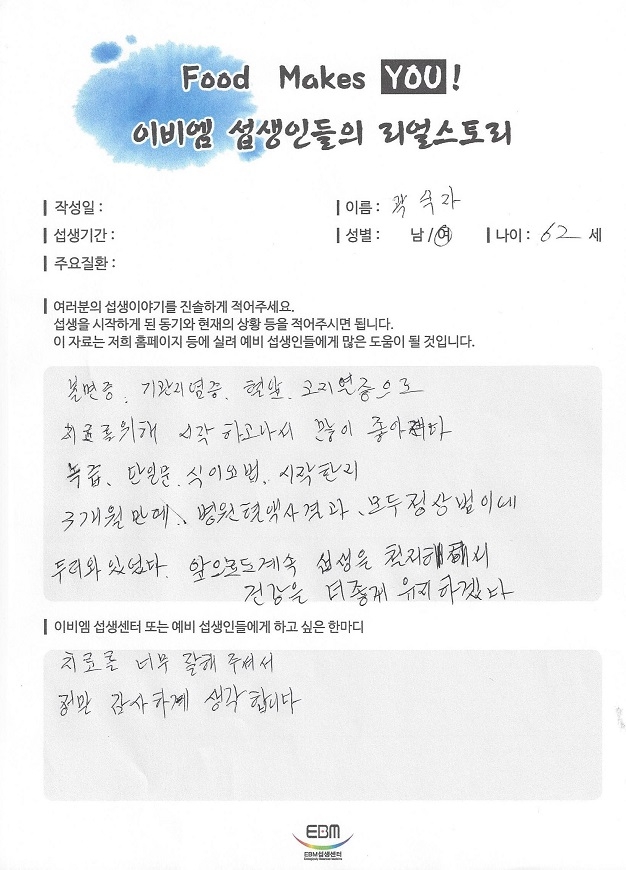 Food Makes YOU!
이비엠 섭생인들의 리얼스토리
작성일 : 이름 : 곽 숙자
섭생기간 : 성별 : 남/여 나이 : 62 세
주요질환 :
여러분의 섭생이야기를 진솔하게 적어주세요.
섭생을 시작하게 된 동기와 현재의 상황 등을 적어주시면 됩니다.
이 자료는 저희 홈페이지 등에 실려 예비 섭생인들에게 많은 도움이 될 것입니다.
불면증, 기관지염증, 혈압, 고지혈증으로
치료를위해 시작하고나서 많이 좋아졌다
녹즙, 단일문, 식이요법, 시작한지
3개월만에, 병원혈액사결과, 모두정상범이네
두리와있었다. 앞으로도계속 섭생을 철저히 해서
건강을 더좋게 유지하겠다
이비엠 섭생센터 또는 예비 섭생인들에게 하고 싶은 한마디
치료를 너무 잘해 주셔서
정말 감사하게 생각합니다
EBM
EBM섭생센터